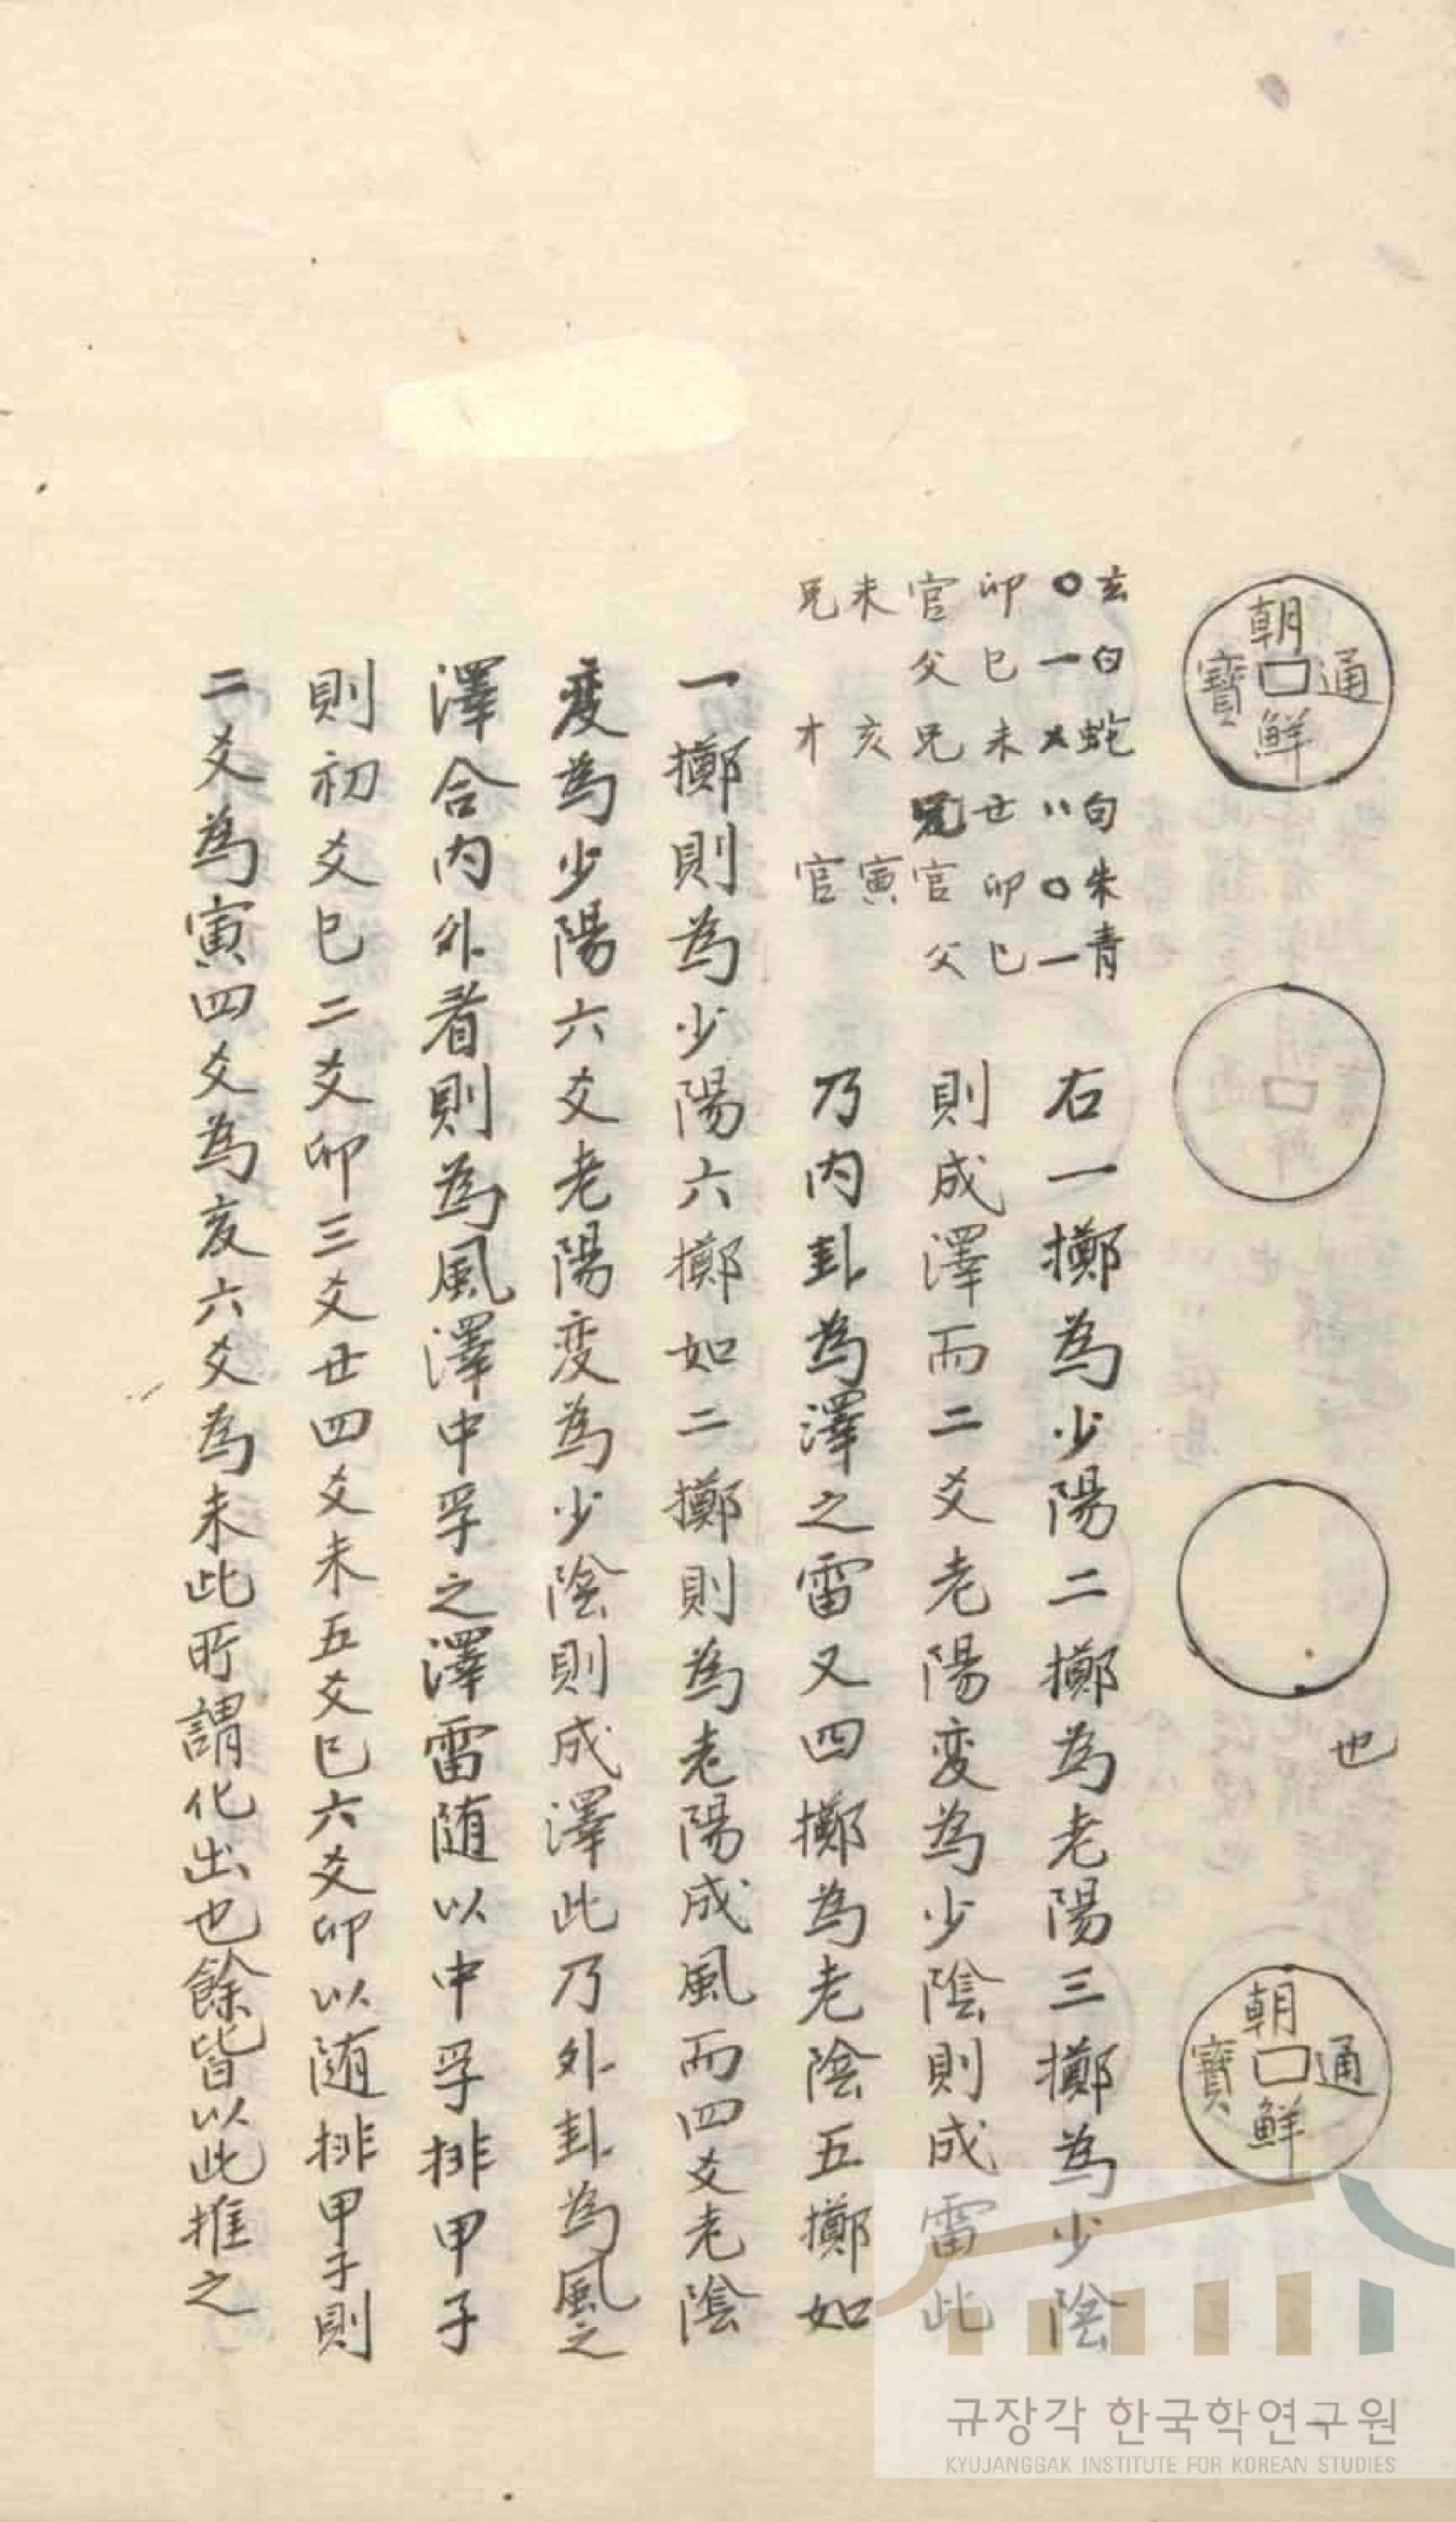 朝鮮通寶
也
朝鮮通寶
玄白蛇句朱青
〇一乄〃〇一
卯巳未世卯巳
官父兄兄官父
未亥寅
兄才官
右一擲為少陽二擲為老陽三擲為少陰
則成澤而二爻老陽変為少陰則成雷此
乃内卦為澤之雷又四擲為老陰五擲如
一擲則為少陽六擲如二擲則為老陽成風而四爻老陰
変為少陽六爻老陽変為少陰則成澤此乃外卦為風之
澤合内外看則為風澤中孚之澤雷随以中孚排甲子
則初爻巳二爻卯三爻世四爻未五爻巳六爻卯以随排甲子則
二爻為寅四爻為亥六爻為未此所謂化出也餘皆以此推之
규장각 한국학연구원
KYUJANGGAK INSTITUTE FOR KOREAN STUDIES